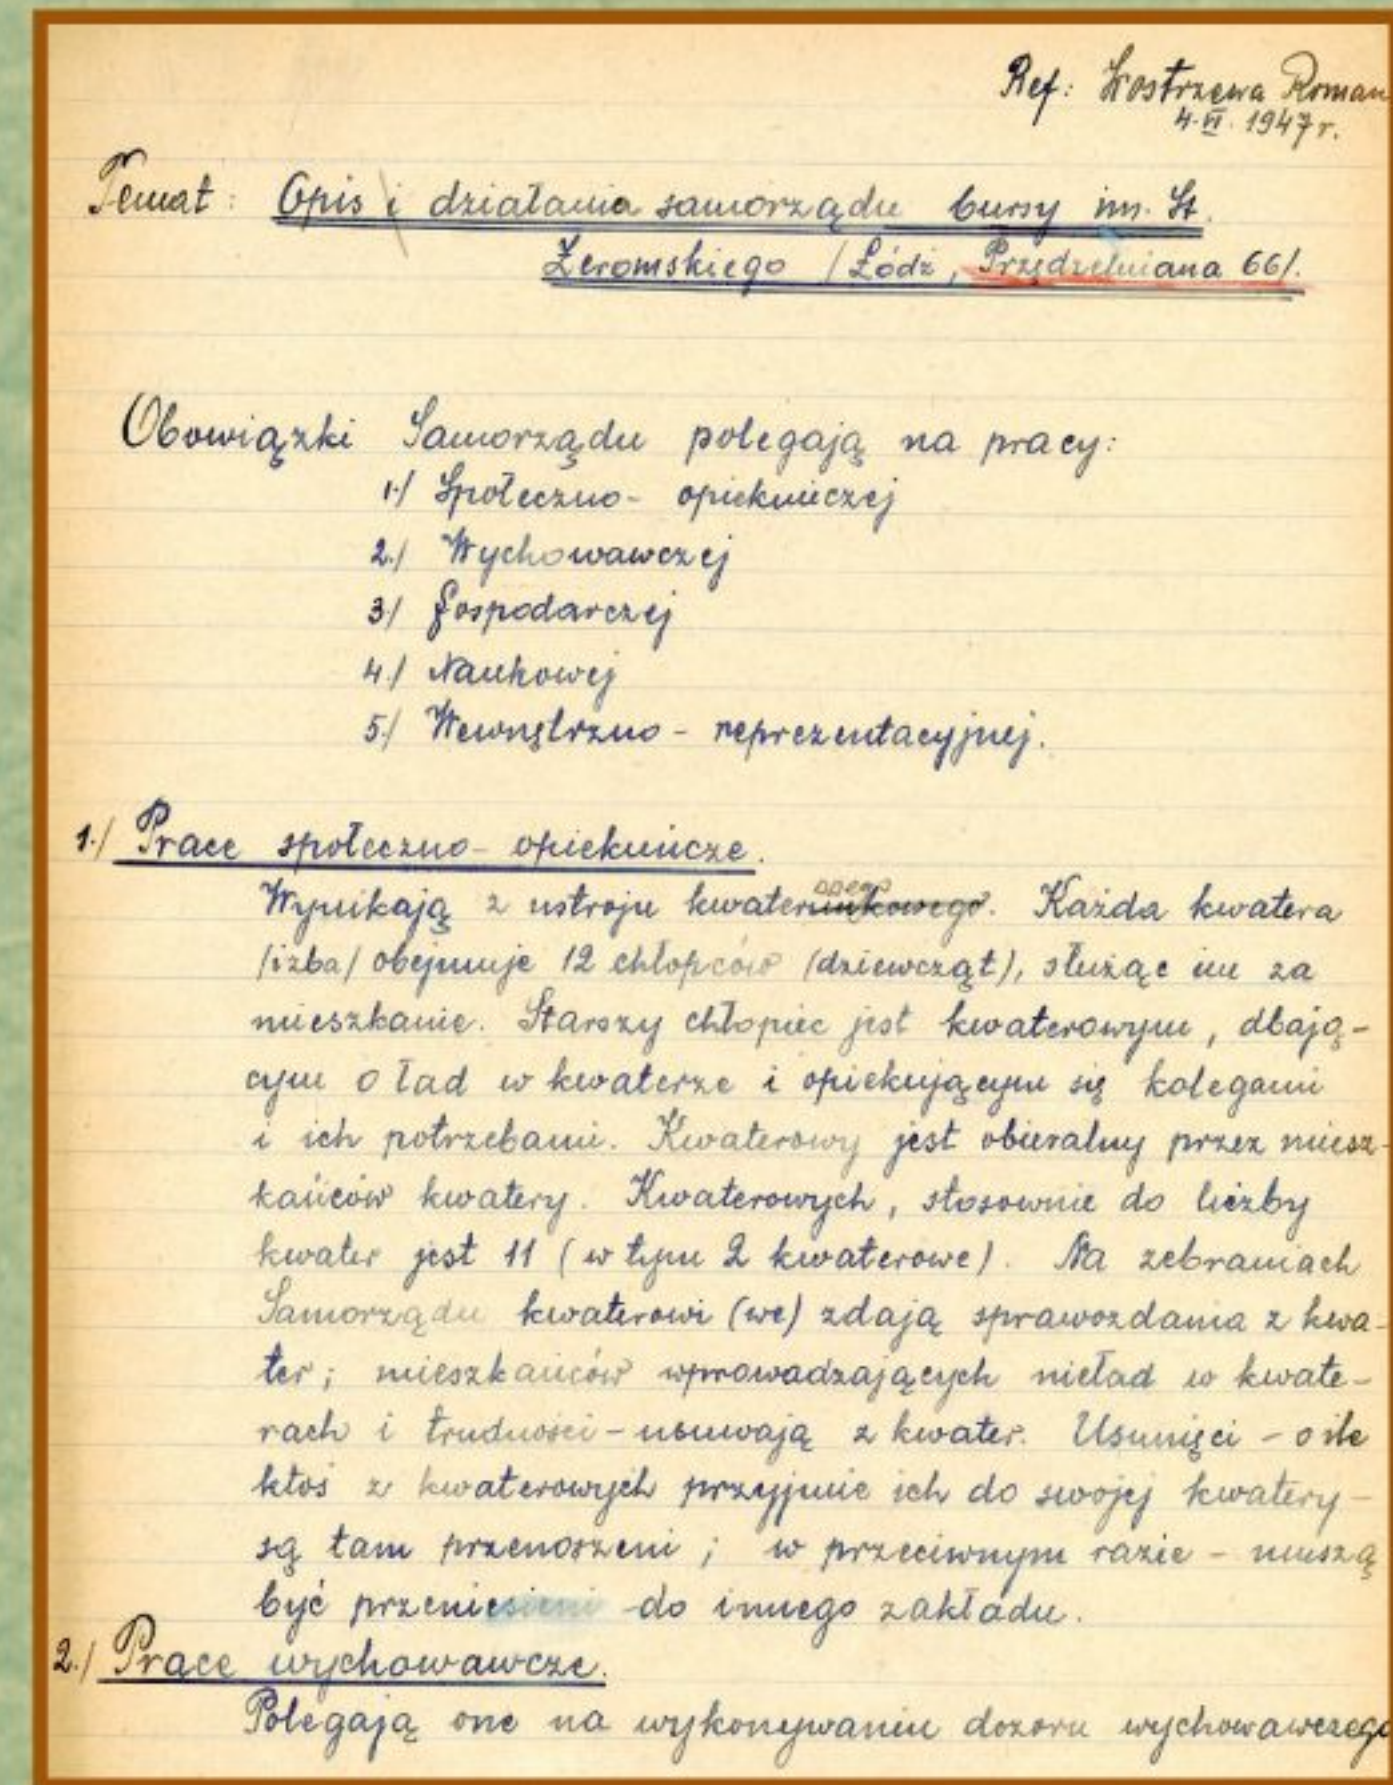 Ref: Kostrzewa Roman
4.VI. 1947 r.
Temat: Opis i działania samorządu bursy im. St.
Żeromskiego /Łódź, Przędzelniana 66/.
Obowiązki Samorządu polegają na pracy:
1./ Społeczno- opiekuńczej
2./ Wychowawczej
3/ Gospodarczej
4./ Naukowej
5./ Wewnętrzno - reprezentacyjnej.
1./ Prace społeczno- opiekuńcze.
Wynikają z ustroju kwaterunkowego. Każda kwatera
/izba/ obejmuje 12 chłopców (dziewcząt), służąc im za
mieszkanie. Starszy chłopiec jest kwaterowym, dbają-
cym o ład w kwaterze i opiekującym się kolegami
i ich potrzebami. Kwaterowy jest obieralny przez miesz-
kańców kwatery. Kwaterowych, stosownie do liczby
kwater jest 11 (w tym 2 kwaterowe). Na zebraniach
Samorządu kwaterowi (we) zdają sprawozdania z kwa-
ter; mieszkańców wprowadzających nieład w kwate-
rach i trudności - usuwają z kwater. Usunięci - o ile
ktoś z kwaterowych przyjmie ich do swojej kwatery -
są tam przenoszeni; w przeciwnym razie - muszą
być przeniesieni do innego zakładu.
2./ Prace wychowawcze.
Polegają one na wykonywaniu dozoru wychowawczego